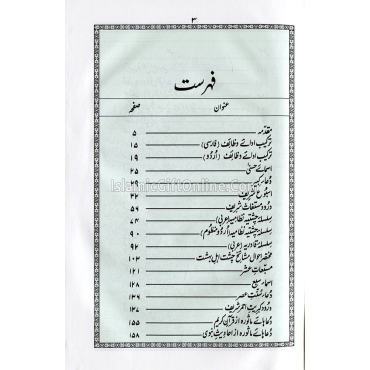 ۳
فہرست
عنوان صفحہ
مقدمہ ۵
ترکیب ادائے وظائف (فارسی) ۱۵
ترکیب ادائے وظائف (اُردُو) ۱۹
اسمائے حسنیٰ ۲۵
دُعاء کبیر ۲۹
اسبُوع شریف ۳۲
درُود مستغاث شریف ۵۶
سلسلہ چشتیہ نظامیہ (عربی) ۷۴
سلسلہ چشتیہ نظامیہ (اُردُو منظوم) ۹۰
سلسلہ قادریہ (عربی) ۹۲
مختصر احوال مشائخ چشت اہل بہشت ۱۰۳
مسبّعاتِ عشر ۱۲۱
اسماء سبع ۱۲۸
دُعاء سنّتِ عصر ۱۳۶
درُود کبریتِ احمر شریف ۱۳۷
دُعاہائے ماثورہ از قرآن کریم ۱۵۵
دُعاہائے ماثورہ از احادیثِ نبوی ۱۵۸
IslamicGiftOnline.Com